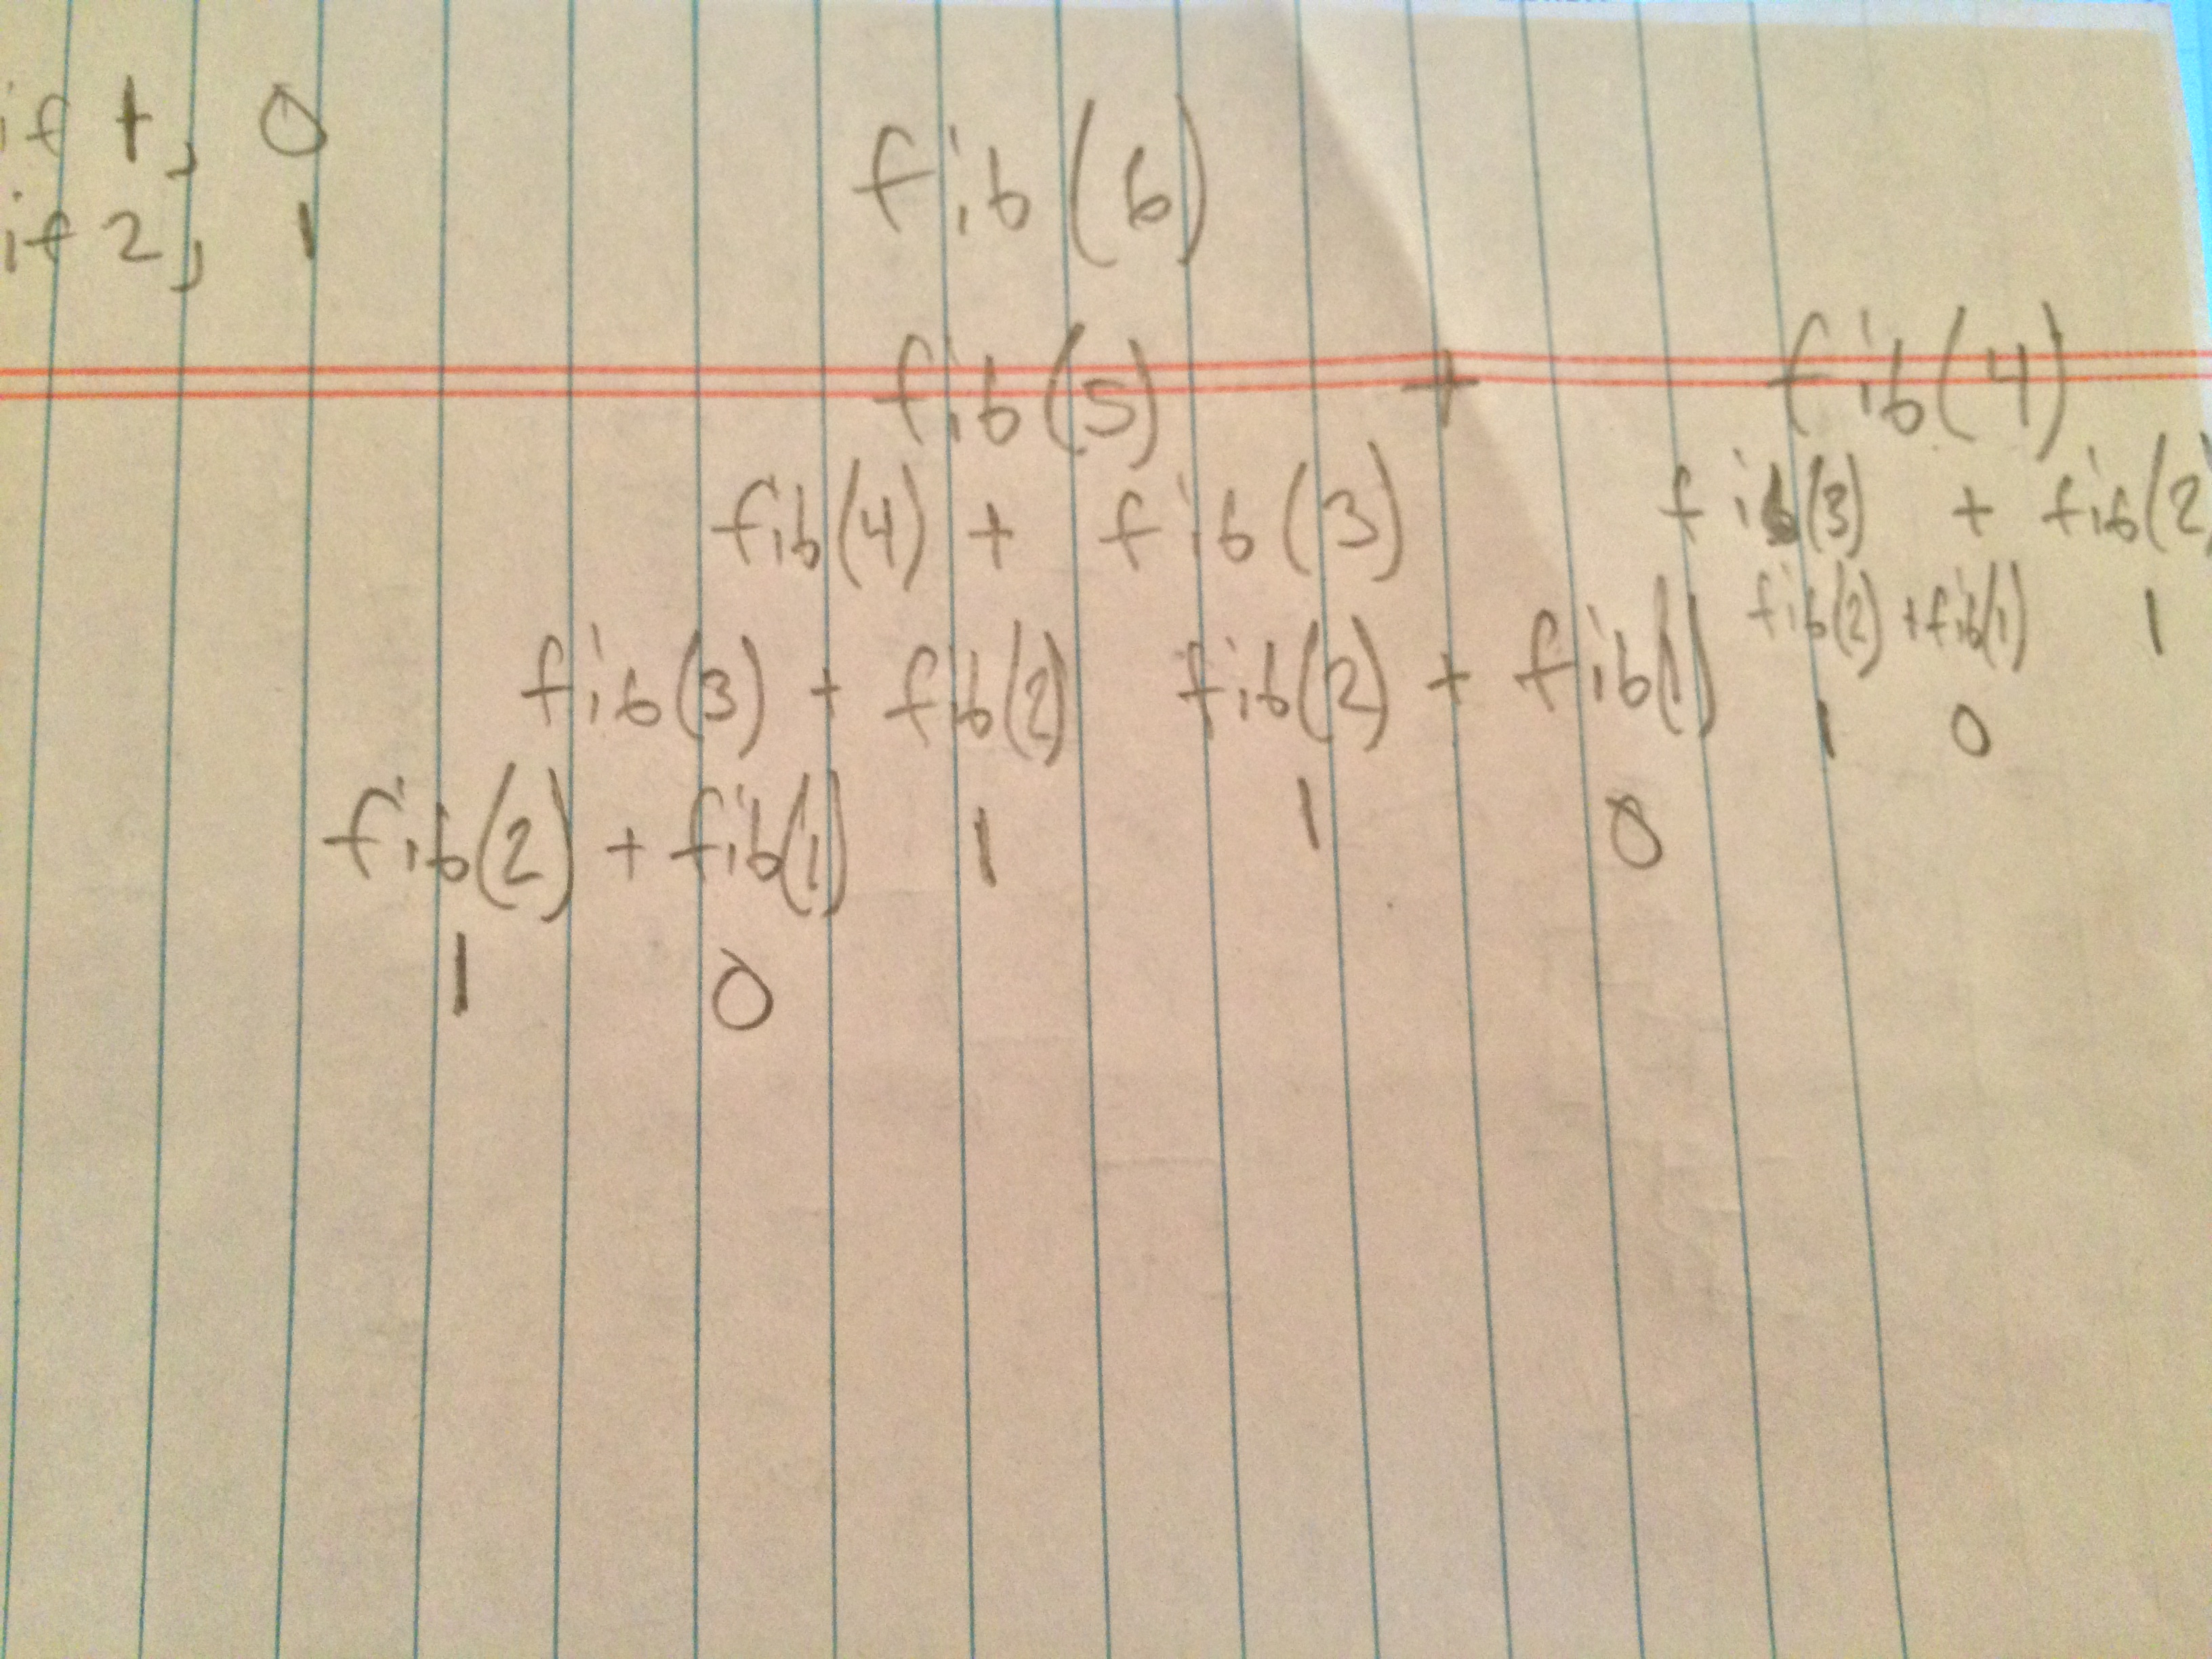 if 1, 0
if 2, 1
fib(6)
fib(5) + fib(4)
fib(4) + fib(3) fib(3) + fib(2)
fib(3) + fib(2) fib(2) + fib(1) fib(2) + fib(1) 1
fib(2) + fib(1) 1 1 0 1 0
1 0